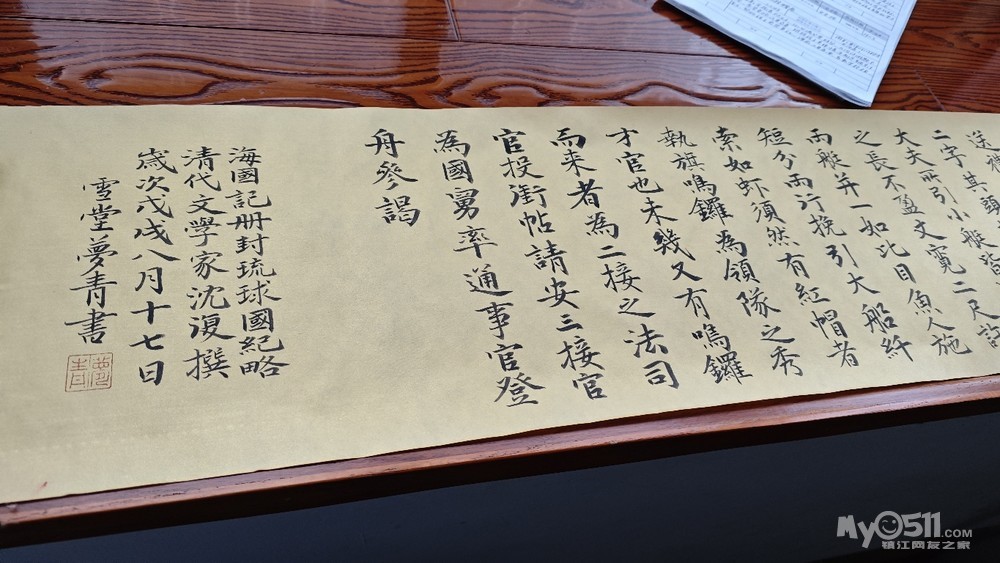 送
二字其頭
大夫所引小般皆
之長不盈丈寬二尺許
两般并一如比目魚人施
短分两行挽引大船纤
索如虾須然有紅帽者
執旗鳴鑼為領隊之秀
才官也未幾又有鳴鑼
而来者為二接之法司
官投銜帖請安三接官
為國舅率通事官登
舟參謁
海國記册封琉球國紀略
清代文學家沈復撰
歳次戊戌八月十七日
雪堂夢青書
My0511.COM
镇江网友之家